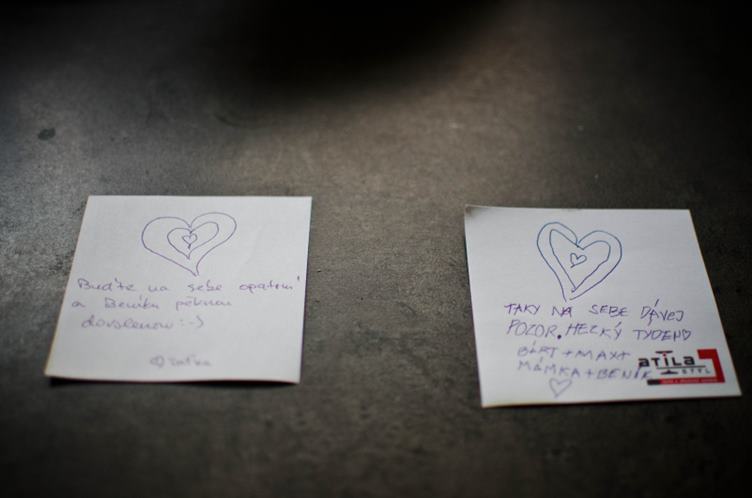 Buďte na sebe opatrní
a Beníku pěknou
dovolenou :-)
TAKY NA SEBE DÁVEJ
POZOR. HEZKÝ TÝDEN
BÁRT + MAX +
MÁMKA + BENÍK
ATILA
STYL